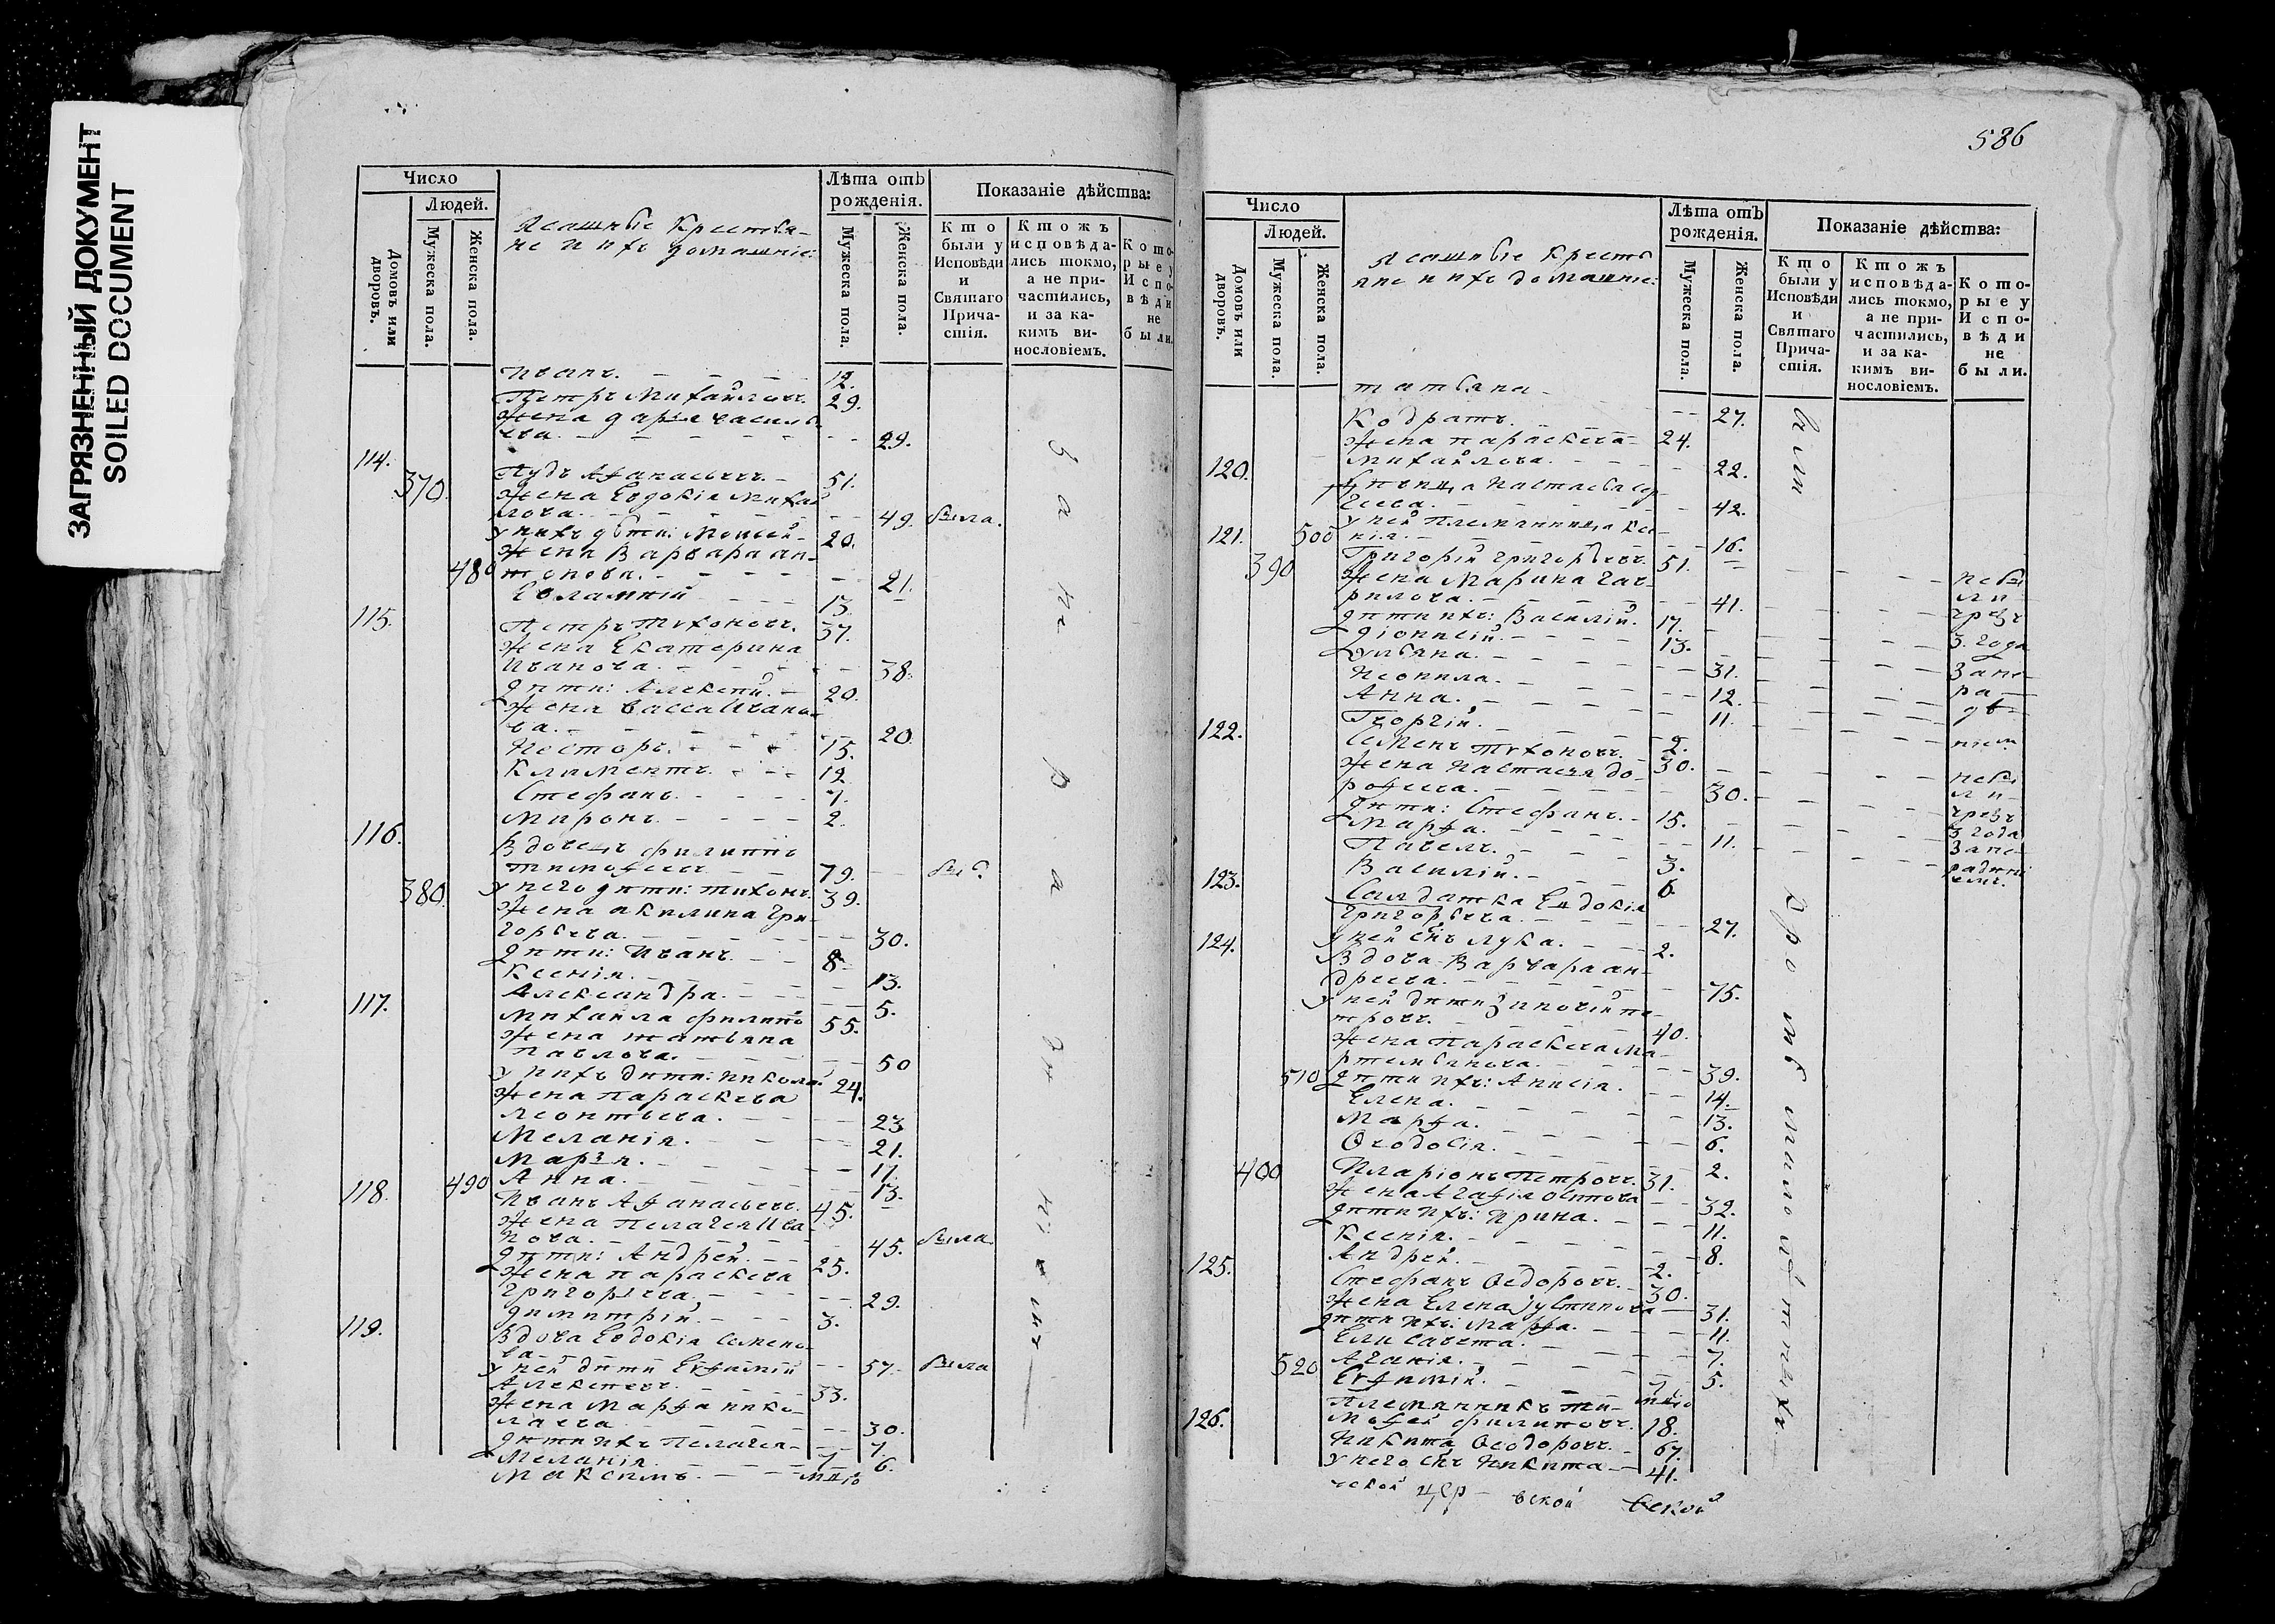 ЗАГРЯЗНЕННЫЙ ДОКУМЕНТ
SOILED DOCUMENT
Число
Людей.
Домовъ или дворовъ.
Мужеска пола.
Женска пола.
Ясашные Крестья-
не и ихъ домашніе:
Лѣта отъ рожденія.
Мужеска пола.
Женска пола.
Показаніе дѣйства:
Кто были у Исповѣди и Святаго Причастія.
Ктожъ исповѣда-лись токмо, а не при-частились, и за ка-кимъ ви-нословіемъ.
Кото-рые у Испо-вѣди не были.
Иванъ. 12.
Петръ Михайловъ. 29.
Жена Дарья Василь-
ева. 29.
114. Иудъ Афанасьевъ. 51.
370. Жена Евдокія Михай
лова. 49. была.
У нихъ дѣти: Моисей 20.
Жена Варвара ан-
480 тонова. 21.
Евлампій 13.
115. Петръ Тихоновъ. 37.
Жена Екатерина
Иванова. 38.
Дѣти: Алексѣй. 20.
Жена Васса Ивано-
ва. 20.
Несторъ. 15.
Климентъ. 12.
Стефанъ. 7.
Миронъ. 2.
116. Вдовецъ Филиппъ
Тимофеевъ 79.
380. У него дѣти: Тихонъ. 39.
Жена акилина Гри-
горьева. 30.
Дѣти: Иванъ. 8.
Ксенія. 13.
Александра. 5.
117. Михайла Филипо 55.
Жена Татьяна
Павлова. 50
У нихъ дѣти: Никола 24.
Жена Параскева
Леонтьева. 23
Меланія. 21.
Марья. 17.
490 Анна. 13.
118. Иванъ Афанасьевъ. 45.
Жена Пелагея Ива-
нова. 45. была.
Дѣти: Андрей. 25.
Жена Параскева
Григорьева. 29.
Димитрій. 3.
119. Вдова Евдокія Семено-
ва 57. была
У ней дѣти Евфимій
Алексѣевъ. 33.
Жена Марфа Нико-
лаева 30.
Дѣти ихъ Пелагея 7.
Меланія 6.
Максимъ.
586
Число
Людей.
Домовъ или дворовъ.
Мужеска пола.
Женска пола.
Ясашные Кресть
яне и ихъ домашніе:
Лѣта отъ рожденія.
Мужеска пола.
Женска пола.
Показаніе дѣйства:
Кто были у Исповѣди и Святаго Прича-стія.
Ктожъ исповѣда-лись токмо, а не при-частились, и за ка-кимъ ви-нословіемъ.
Кото-рые у Испо-вѣди не были.
Татьяна 27.
Кодратъ. 24.
Жена Параскева
Михайлова. 22.
120. Настасья
42.
У ней Племянница Ксе-
500 нія. 16.
121. Григорій Григорьевъ. 51.
390 Жена Марина Гав-
рилова. 41.
Дѣти ихъ: Василій. 17.
Діонисій. 13.
Ульяна. 31.
Неонила. 12.
Анна. 11.
Георгій. 2.
122. Семенъ Тихоновъ. 30.
Жена Настасья До-
рофеева. 30.
Дѣти: Стефанъ. 15.
Марфа. 11.
Павелъ. 3.
Василій. 6.
123. Салдатка Евдокія
Григорьева. 27.
У ней снъ Лука. 2.
124. Вдова Варвара ан-
дреева. 75.
У ней дѣти Зиновій Пе-
тровъ. 40.
Жена Параскева Ма-
ртемьянова. 39.
510 Дѣти ихъ: Анисія. 14.
Елена. 13.
Марфа. 6.
Ѳеодосія. 2.
400 Иларіонъ Петровъ. 31.
Жена Агафія Осипова 32.
Дѣти ихъ: Ирина. 11.
Ксенія. 8.
Андрей. 2.
125. Стефанъ Ѳедоровъ. 30.
Жена Елена Іустинова 31.
Дѣти ихъ: Марфа. 11.
Елисавета. 7.
520 Агапія. 5.
Евфимій.
Племянникъ Ти-
мофей Филиповъ. 18.
126. Никита Ѳеодоровъ. 67.
У него снъ Никита 41.